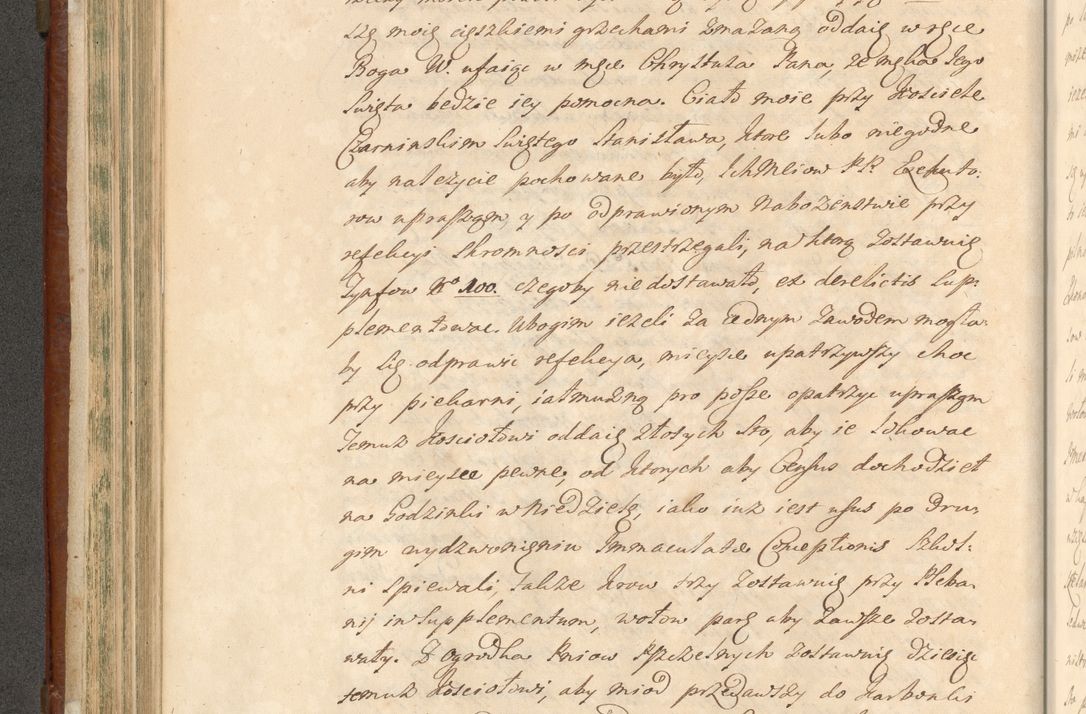 szę moię cięszkiemi grzechami zmazaną oddaię w ręce
Boga W. ufaiąc w męce Chrystusa Pana, że męka Jego
Swięta bedzie iey pomocna. Ciało moie przy Kosciele
Czarninskim Swiętego Stanisława, ktore lubo niegodne
aby należycie pochowane było, Ichmciow PP. Exekuto:
row upraszam, y po odprawionym Nabożenstwie przy
refekcyi skromnosci przestrzegali, na ktorą zostawuię
Tynfow No 100. czegoby niedostawało, ex derelictis sup:
plementowac. Ubogim ieżeli za iednym zawodem mogła
by się odprawic refekcya, mieysce upatrzywszy choc
przy piekarni, iałmużną pro posse opatrzyc upraszam
Temuż Kosciołowi oddaię złotych sto, aby ie lokowac
na mieysce pewne, od ktorych aby Census dochodzieł
na Godzinki w Niedziele, iako iuż iest usus po dru
gim wydzwonieniu Immaculatæ Conceptionis Szkol:
ni spiewali, także krow trzy zostawuię przy Pleba
nij in supplementum, wołow parę aby zawsze zosta
wały. Z ogrodka Pniow Pszczelnych zostawuię dziewięc
temuż Kosciołowi, aby miod przedawszy do Karbonki